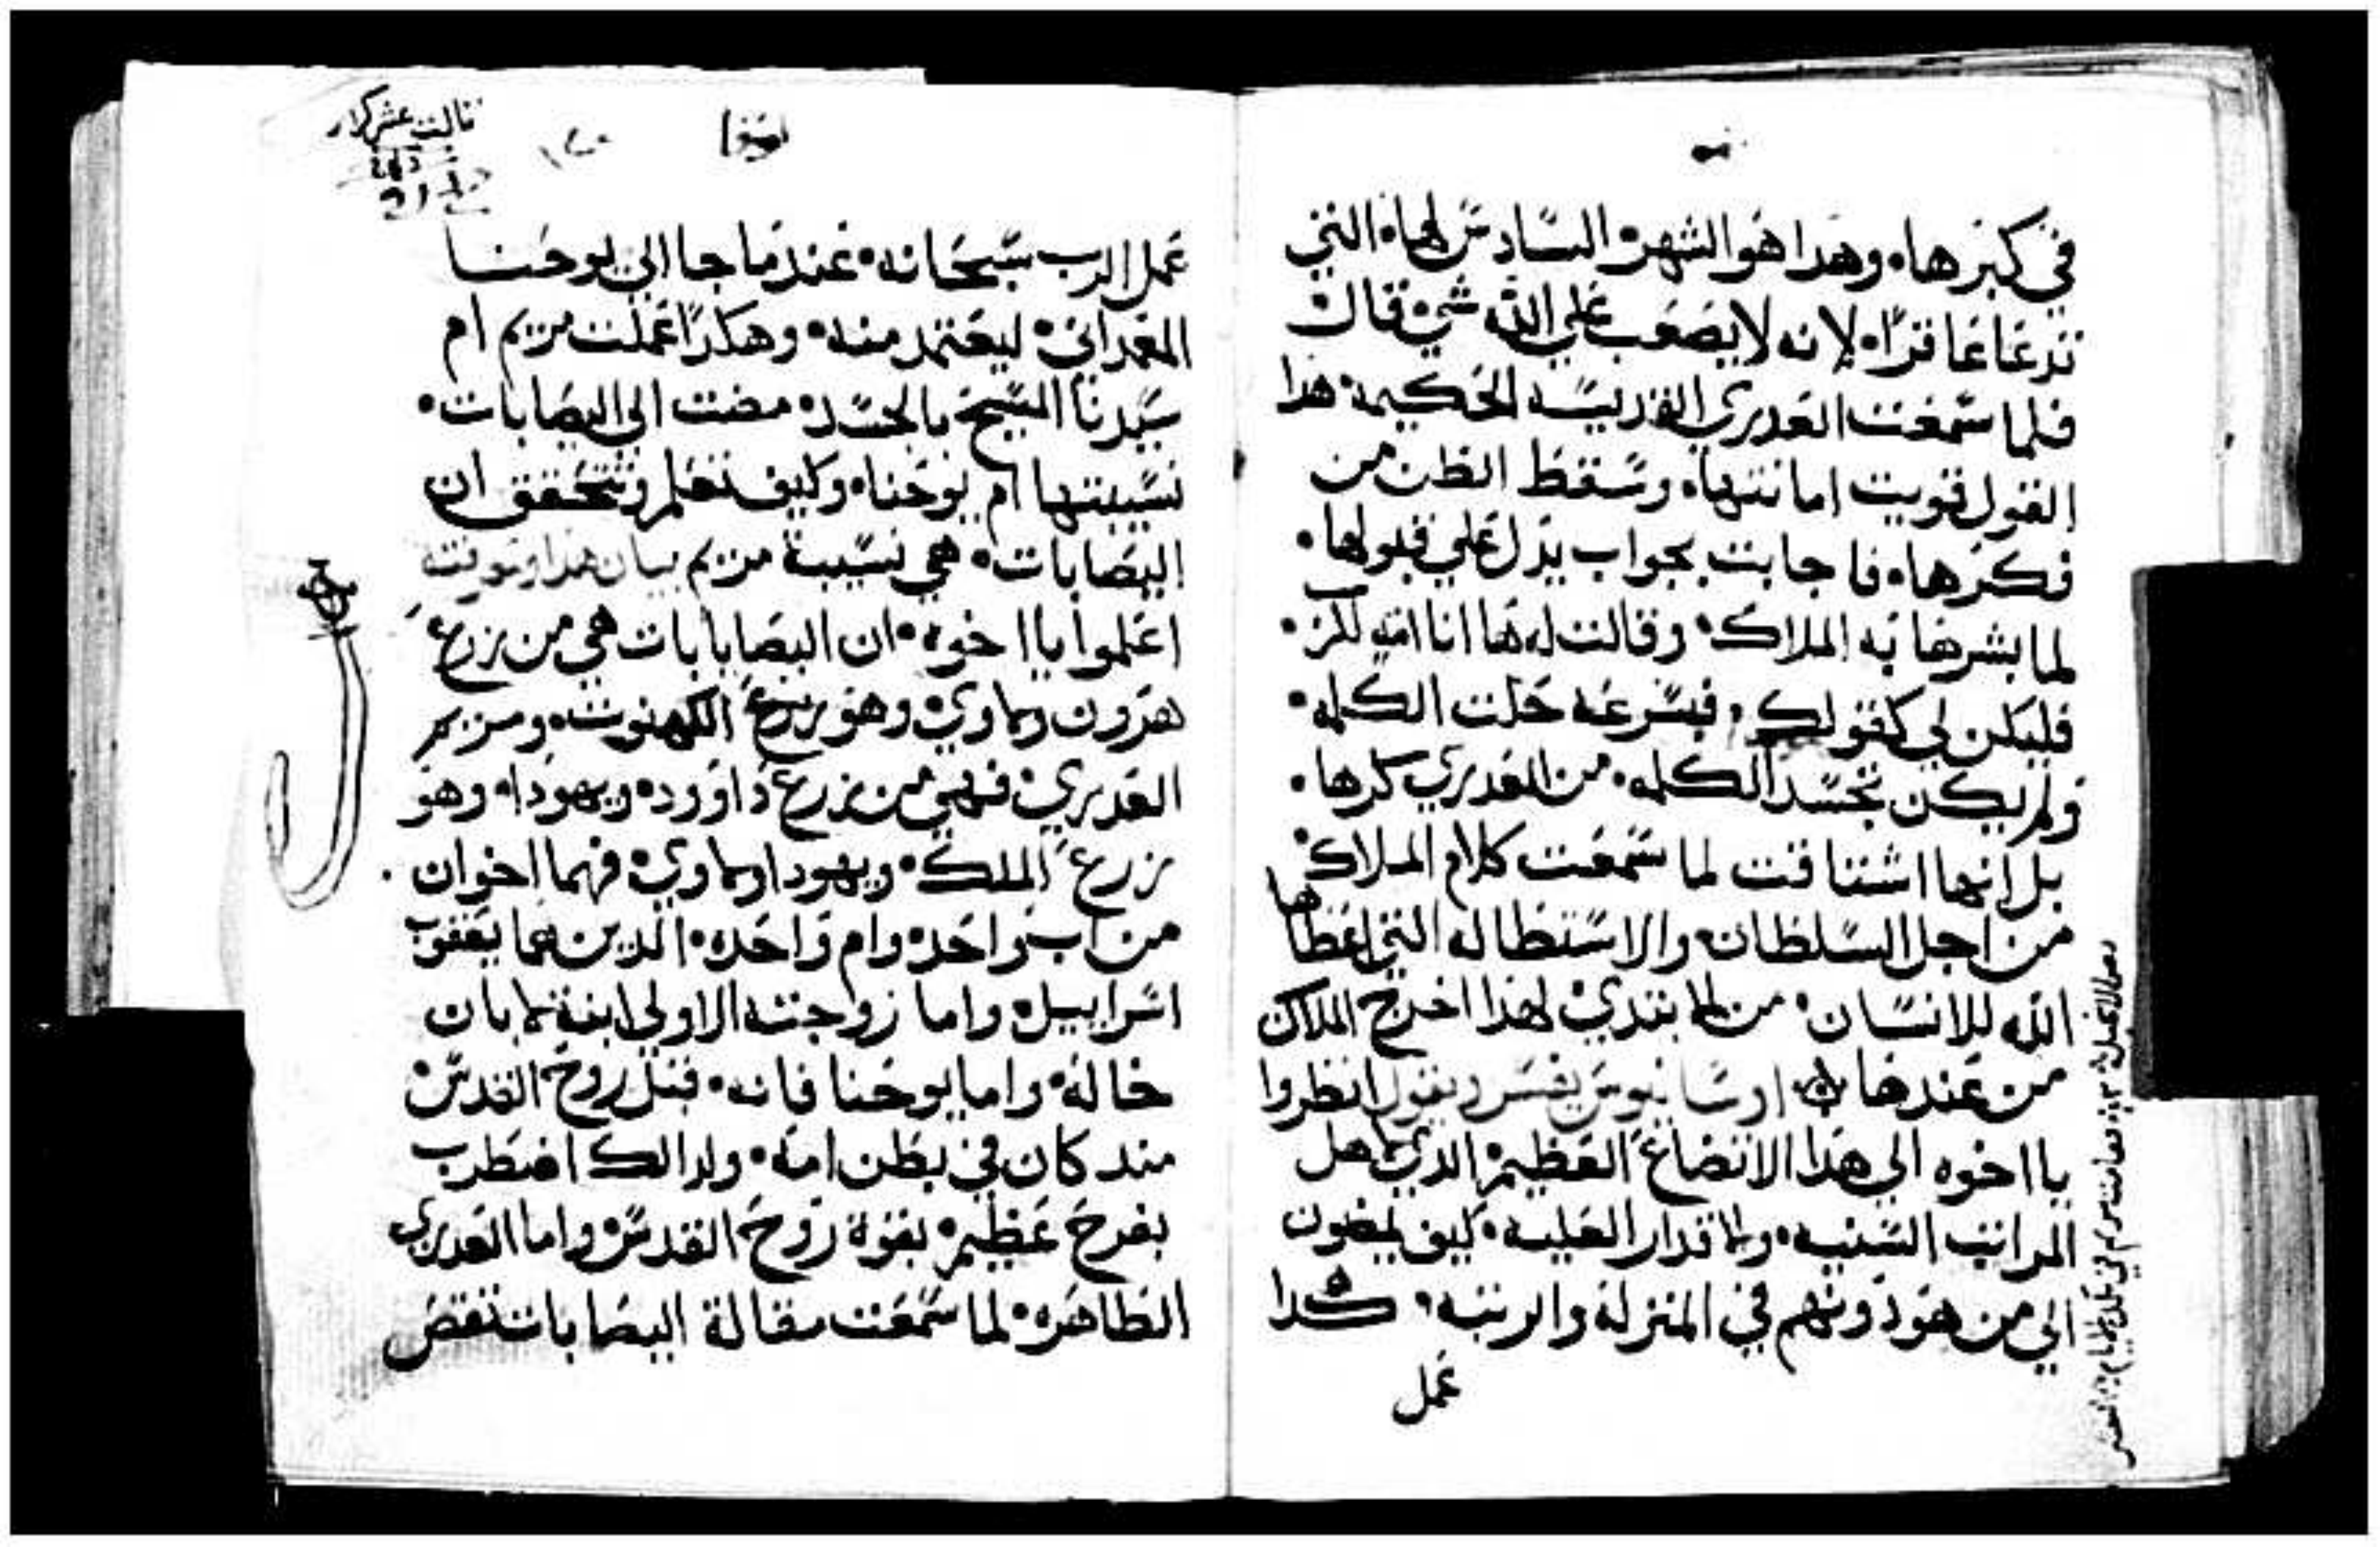 في كبرها، وهدا هو الشهر، السادس لها، التي
تدعا عاقرًا، لانه لا يصعب علي الله شي، قال
فلما سمعت العدري القديسه الحكيمه، هدا
القول قويت امانتها، وسقط الظن من
فكرها، فاجابت بجواب يدل علي قبولها،
لما بشرها به الملاك، وقالت له ها انا امه للرب،
فليكن لي كقولك، فبسرعه حلت الكلمه،
ولم يكن تجسد الكلمه، من العدري كرها،
بل انها اشتاقت لما سمعت كلام الملاك،
من اجل السلطان، والاستطاله التي اعطاها
الله للانسان، من الابتدي، لهدا اخرج الملاك
من عندها ارسانيوس يفسر ويقول انظروا
يا اخوه الي هدا الاتضاع العظيم، الدي لاهل
المراتب السنيه، والاقدار العليه، كيف يمضون
الي من هو دونهم في المنزله والرتبه، كدا
عمل
لوقا
تالت عشر كراس
عمل الرب سبحانه، عند ما جا الي يوحنا
المعمداني، ليعتمد منه، وهكدا عملت مريم ام
سيدنا المسيح بالجسد، مضت الي اليصابات،
نسيبتها ام يوحنا، وكيف نعلم ونتحقق ان
اليصابات، هي نسيبة مريم بيان هدا وتبوتته
اعلموا يا اخوه، ان اليصابابات هي من زرع
هرون ولاوي، وهو زرع الكهنوت، ومريم
العدري، فهي من زرع داوود، ويهودا، وهو
زرع الملك، ويهودا ولاوي، فهما اخوان،
من اب واحد، وام واحده، الدين هما يعقوب
اسراييل، واما زوجته الاولي ابنة لابان
خاله، واما يوحنا فانه، قبل روح القدس،
مند كان في بطن امه، ولدالك اضطرب
بفرح عظيم، بقوة روح القدس، واما العدري
الطاهره، لما سمعت مقالة اليصابات تقص